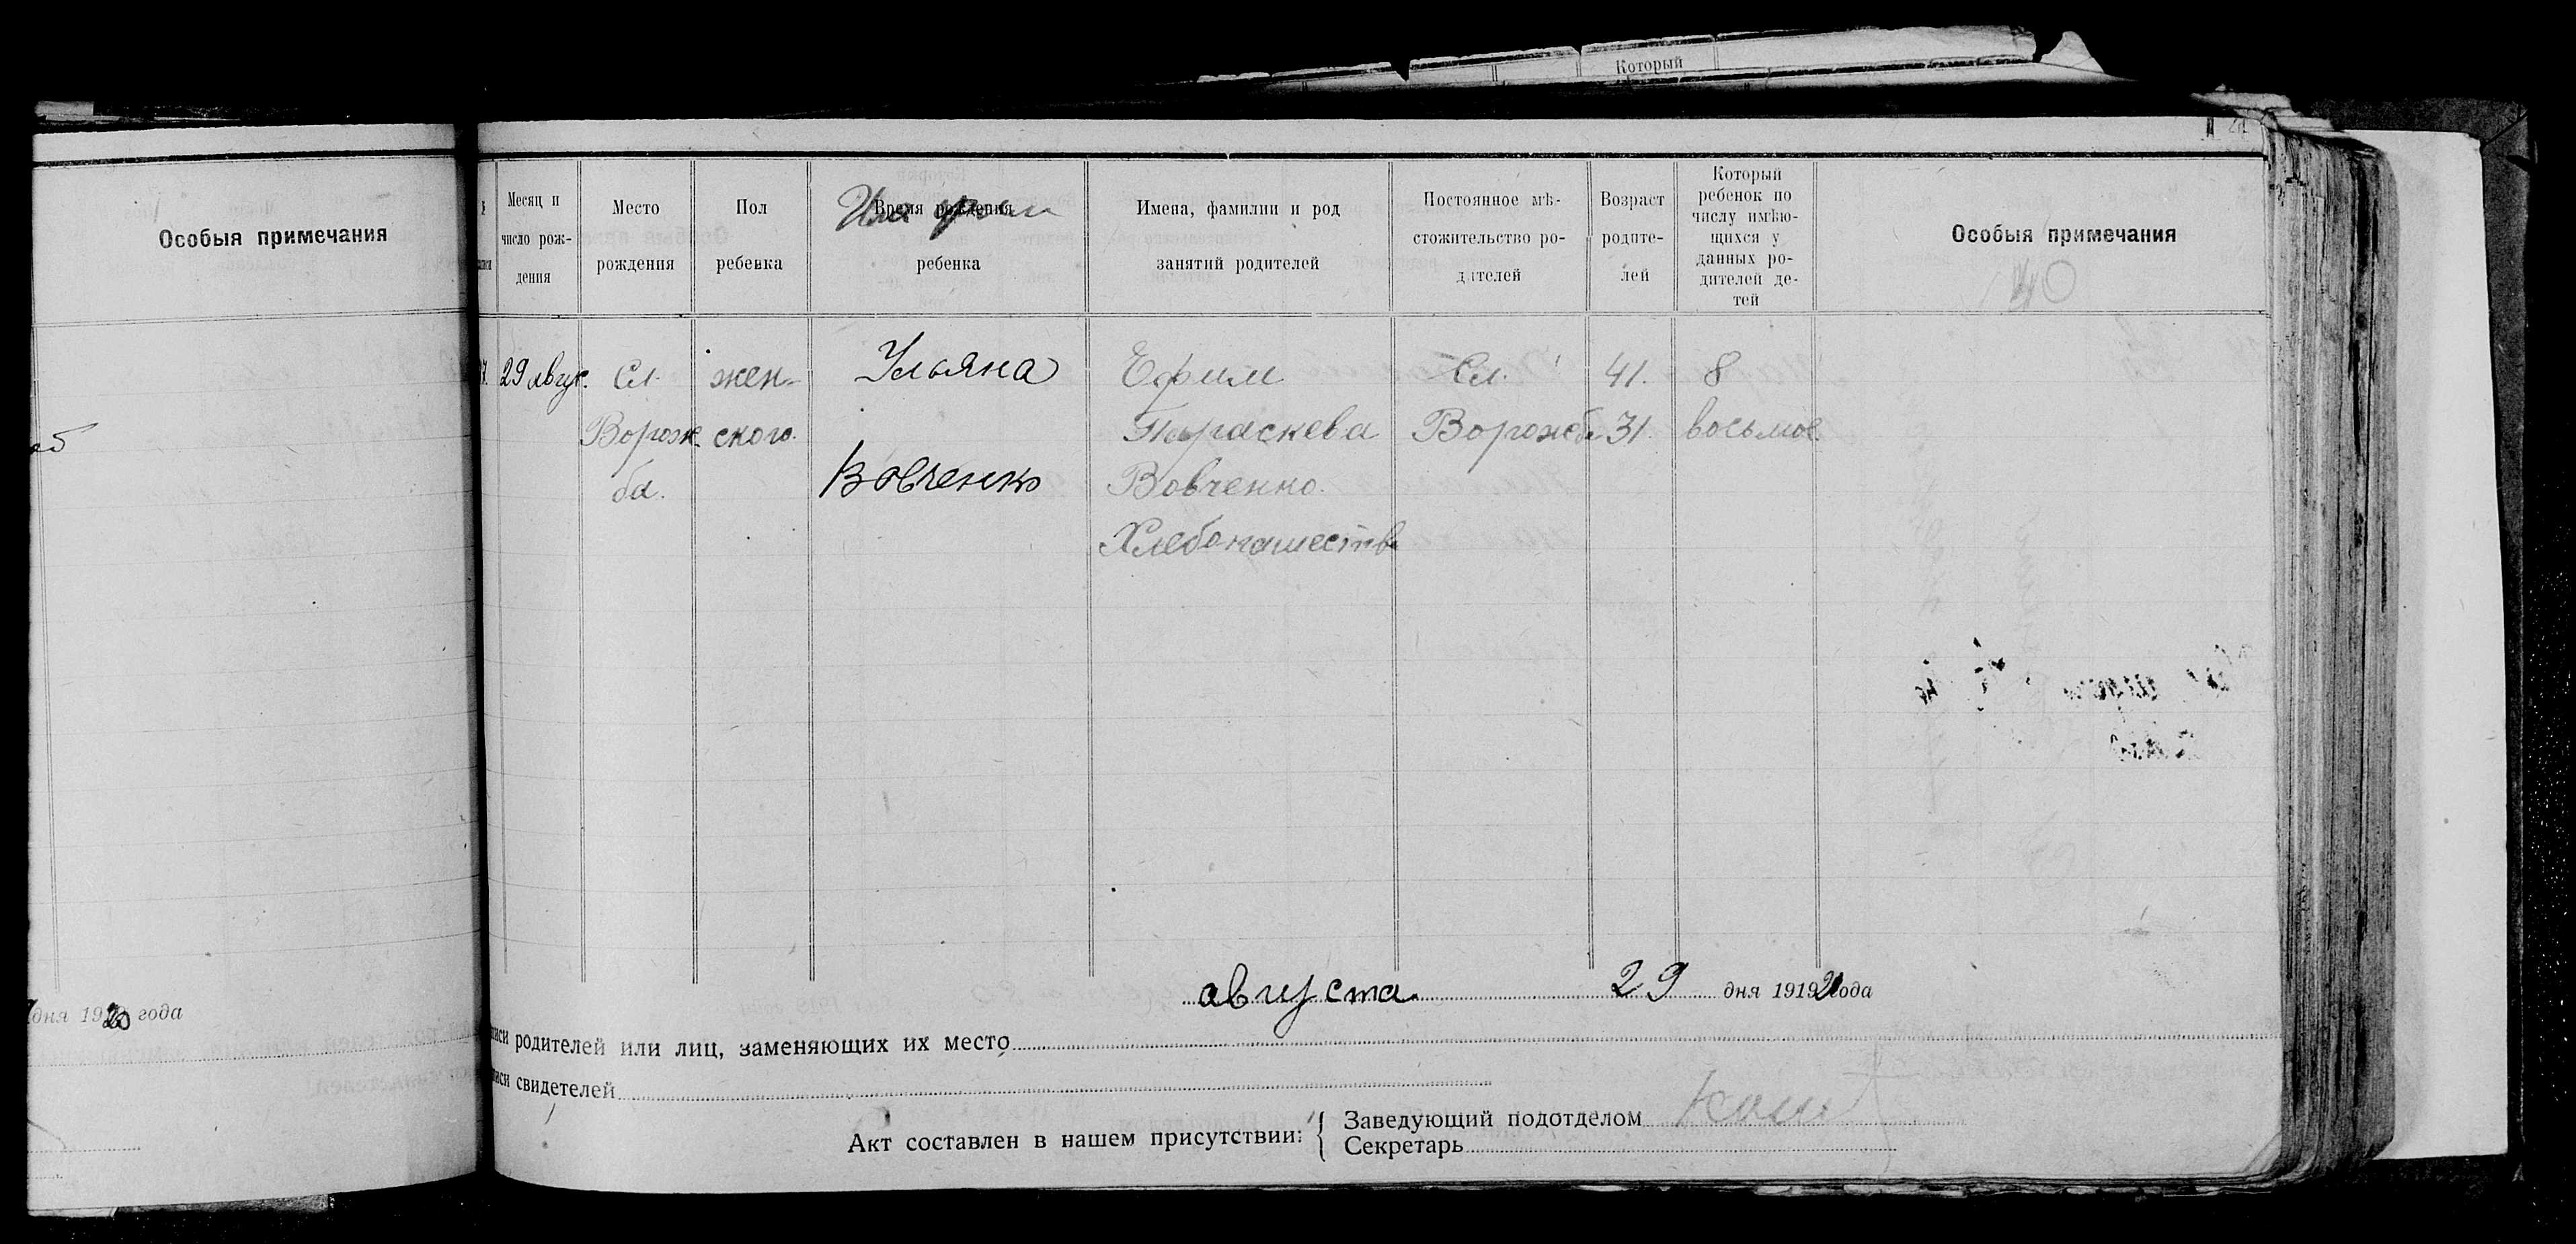 Который
Особыя примечания
об
дня 1920 года
Месяц и
число рож-
дения
Место
рождения
Пол
ребенка
Время рождения
Имя
ребенка
Имена, фамилии и род
занятий родителей
Постоянное мѣ-
стожительство ро-
дителей
Возраст
родите-
лей
Который
ребенок по
числу имѣю-
щихся у
данных ро-
дителей де-
тей
Особыя примечания
40
29 авгус.
Сл.
Ворож
ба.
жен-
ского.
Ульяна
Вовченко
Ефим
Параскева
Вовченко.
Хлебопашество
Сл.
Ворожба
41.
31.
8
восьмое.
августа 29 дня 1919 года
родителей или лиц, заменяющих их место
свидетелей
Акт составлен в нашем присутствии:
Заведующий подотделом
Секретарь